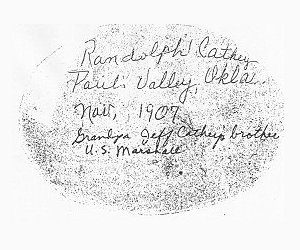 Randolph Cathey
Pauls Valley, Okla.
Nov, 1907
Grandpa Jeff Cathey's brother
U.S. Marshall